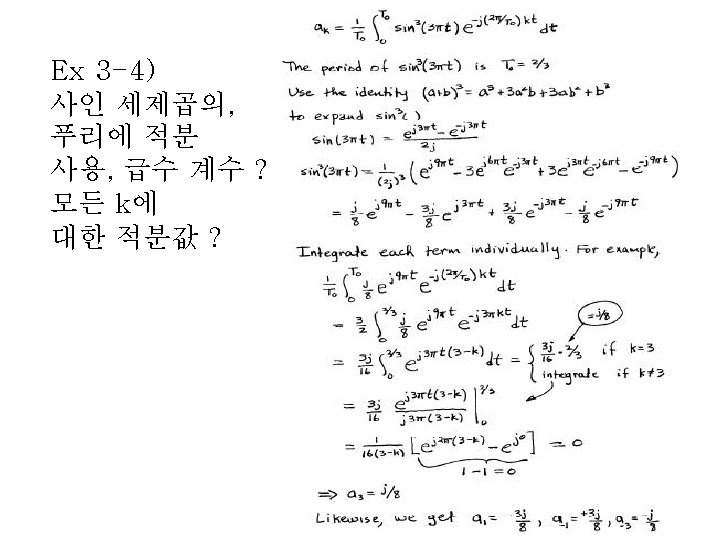 Ex 3-4)
사인 세제곱의,
푸리에 적분
사용, 급수 계수 ?
모든 k에
대한 적분값 ?
aₖ = 1/T₀ ∫₀^T₀ sin³(3πt) e^-j(2π/T₀)kt dt
The period of sin³(3πt) is T₀ = 2/3
Use the identity (a+b)³ = a³ + 3a²b + 3ab² + b³
to expand sin³( )
sin(3πt) = (e^j3πt − e^-j3πt) / 2j
sin³(3πt) = 1/(2j)³ (e^j9πt − 3e^j6πt e^-j3πt + 3e^j3πt e^-j6πt − e^-j9πt)
= j/8 e^j9πt − 3j/8 e^j3πt + 3j/8 e^-j3πt − j/8 e^-j9πt
Integrate each term individually. For example,
1/T₀ ∫₀^T₀ j/8 e^j9πt e^-j(2π/T₀)kt dt
= 3/2 ∫₀^2/3 j/8 e^j9πt e^-j3πkt dt
= j/8
= 3j/16 ∫₀^2/3 e^j3πt(3-k) dt = { 3j/16 · 2/3 if k=3
integrate if k≠3
= 3j/16 e^j3πt(3-k) / j3π(3-k) |₀^2/3
= 1/16(3-k) [e^j2π(3-k) − e^j0] = 0
1 − 1 = 0
⇒ a₃ = j/8
Likewise, we get a₁ = -3j/8, a₋₁ = +3j/8, a₋₃ = -j/8